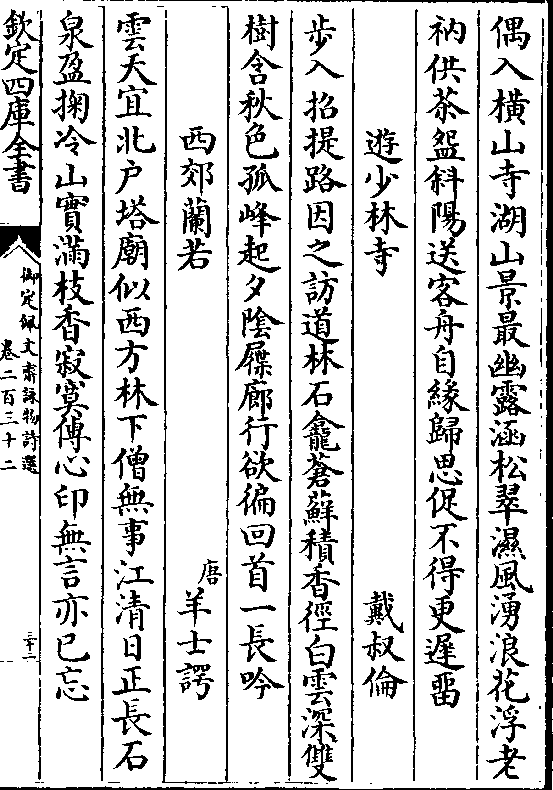 偶入橫山寺湖山景最幽露涵松翠濕風湧浪花浮老
衲供茶盌斜陽送客舟自緣歸思促不得更遲畱
遊少林寺
戴叔倫
步入招提路因之訪道林石龕蒼蘚積香徑白雲深雙
樹含秋色孤峰起夕陰屧廊行欲徧回首一長吟
西郊蘭若
唐羊士諤
雲天宜北户塔廟似西方林下僧無事江清日正長石
泉盈掬冷山實滿枝香寂寞傳心印無言亦已忘
欽定四庫全書
御定佩文齋詠物詩選
卷二百三十二
三十二